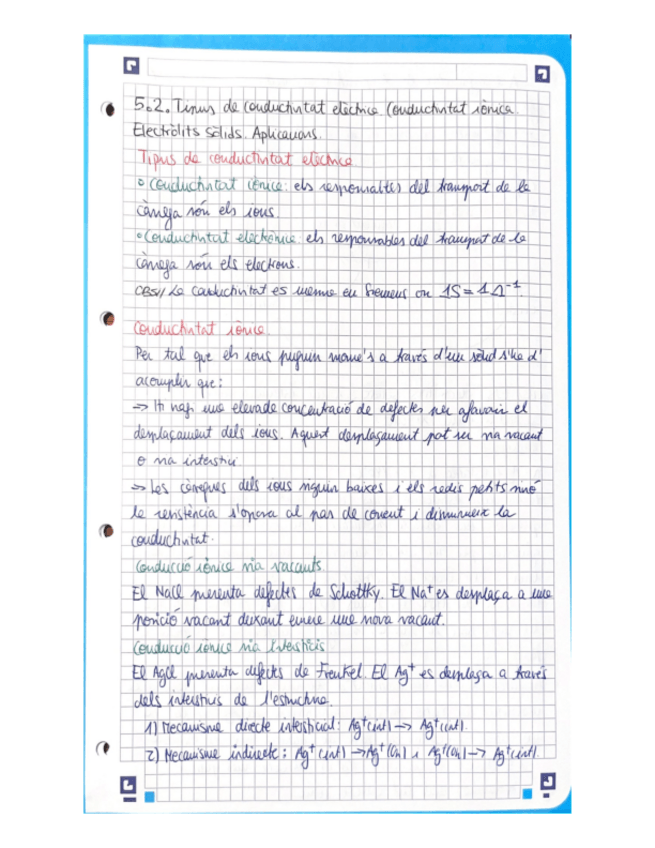 5.2. Tipus de conductivitat elèctrica. Conductivitat iònica.
Electròlits sòlids. Aplicacions.
Tipus de conductivitat elèctrica
◦ Conductivitat iònica: els responsables del transport de la
càrrega són els ions.
◦ Conductivitat electrònica: els responsables del transport de la
càrrega són els electrons.
OBS// La conductivitat es mesura en Siemens on 1S = 1Ω⁻¹.
Conductivitat iònica.
Per tal que els ions puguin moure's a través d'un sòlid s'ha d'
acomplir que:
→ Hi hagi una elevada concentració de defectes per afavorir el
desplaçament dels ions. Aquest desplaçament pot ser via vacant
o via interstici.
→ Les càrregues dels ions siguin baixes i els radis petits sinó
la resistència s'oposa al pas de corrent i disminueix la
conductivitat.
Conducció iònica via vacants.
El NaCl presenta defectes de Schottky. El Na⁺ es desplaça a una
posició vacant deixant enrere una nova vacant.
Conducció iònica via Intersticis
El AgCl presenta defectes de Frenkel. El Ag⁺ es desplaça a través
dels intersticis de l'estructura.
1) Mecanisme directe intersticial: Ag⁺(int) → Ag⁺(int).
2) Mecanisme indirecte: Ag⁺(int) → Ag⁺(Oh) i Ag⁺(Oh) → Ag⁺(int)